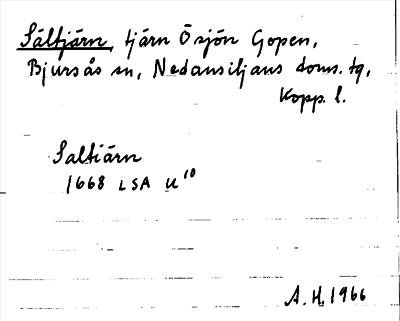 Sältjärn, tjärn Ösjön Gopen,
Bjursås sn, Nedansiljans doms. tg,
Kopp. l.
Saltiärn
1668 LSA U 10
A.H. 1966